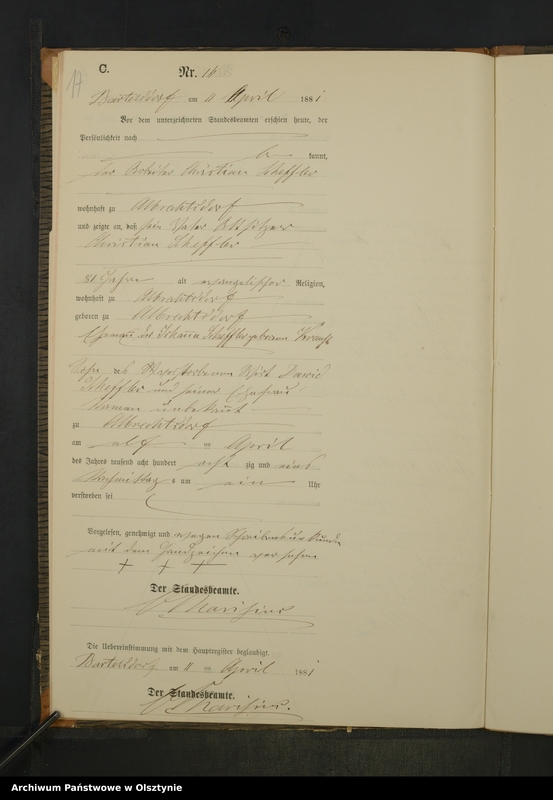 17
C.
Nr. 16
Bartelsdorf am 11 April 1881
Vor dem unterzeichneten Standesbeamten erschien heute, der
Persönlichkeit nach
be kannt,
der Arbeiter Christian Scheffler
wohnhaft zu Albrechtsdorf
und zeigte an, daß sein Vater Altsitzer
Christian Scheffler
81 Jahre alt evangelischer Religion,
wohnhaft zu Albrechtsdorf
geboren zu Albrechtsdorf
Ehemann der Johanna Scheffler geborene
Sohn des verstorbenen Wirt David
Scheffler und seiner Ehefrau
Namen unbekannt
zu Albrechtsdorf
am elf ten April
des Jahres tausend acht hundert acht zig und eins
Nachmittags um ein Uhr
verstorben sei
Vorgelesen, genehmigt und wegen Schreibensunkunde
mit dem Handzeichen versehen
+ + +
Der Standesbeamte.
Die Uebereinstimmung mit dem Hauptregister beglaubigt.
Bartelsdorf am 11 ten April 1881
Der Standesbeamte.
Archiwum Państwowe w Olsztynie